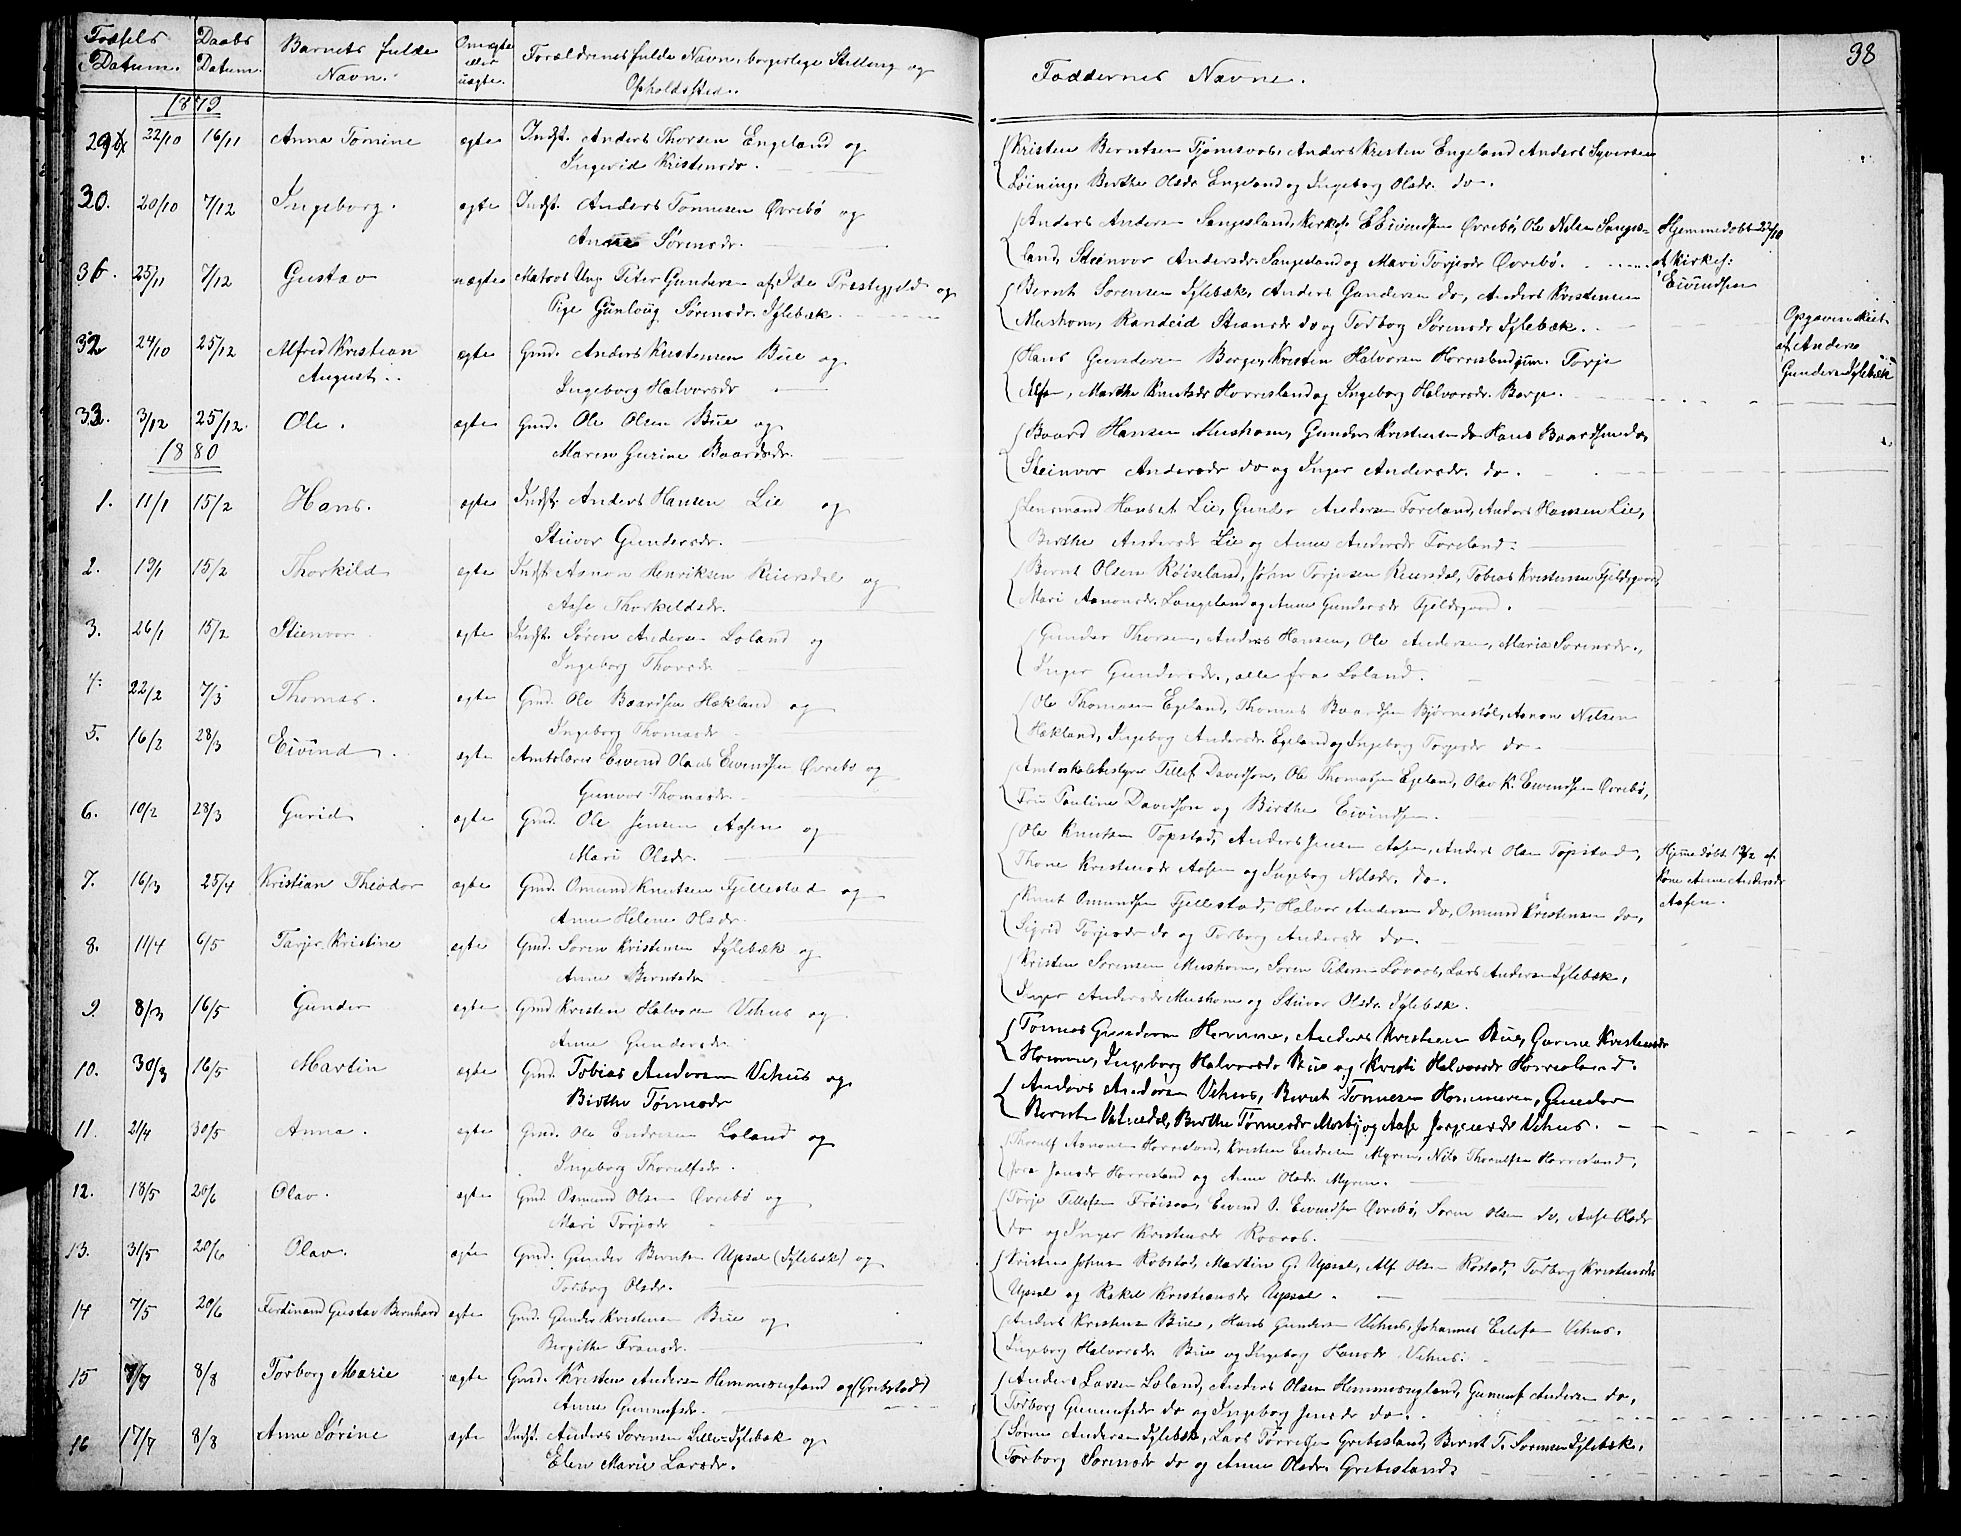 Fødsels Datum.
Daabs Datum.
Barnets fulde Navn.
Om ægte eller uægte.
Forældrenes fulde Navn, borgerlige Stilling og Opholdssted.
Faddernes Navne.
38
1879
29 22/10 16/11 Anna Tomine ægte Indst. Anders Thorsen Engeland og
Ingerid Kristensdr.
Kristen Berntsen Tjomsaas, Anders Kristen Engeland Anders Syversen
Løining, Berthe Olsdr Engeland og Ingeborg Olsdr. do.
30. 20/10 7/12 Ingeborg. ægte Indst. Anders Tønnesen Øvrebø og
Anne Sørensdr.
Anders Andersen Sangesland, Kirkes. E Eivindsen Øvrebø, Ole Nilsen Sanges-
land, Steinvor Andersdr. Sangesland og Mari Torjesdr Øvrebø.
Hjemmedøbt 22/10
af Kirkes:
Eivindsen
31. 25/11 7/12 Gustav uægte Matros Ung. Peter Gundersen af Præstegjeld og
Pige Gunloug Sørensdr. Iglebæk.
Bernt Sørensen Iglebæk, Anders Gundersen do, Anders Kristensen
Mushom, Randeid do og Torborg Sørensdr Iglebæk.
Opgaven skeet
af Anders
Gundersen Iglebæk
32 24/10 25/12 Alfred Kristian
August. ægte Gmd. Anders Kristensen Bue og
Ingeborg Halvorsdr
Hans Gundersen Berge, Kristen Halvorsen Horrisland jun. Torje
Marthe Knutsdr Horrisland og Ingeborg Halvorsdr. Berge.
33. 3/12 25/12. Ole. ægte Gmd. Ole Olsen Bue og
Maren Gurine Baardsdr.
Baard Hansen Mushom, Gunder Kristensen do Hans Baardsen do,
Steinvor Andersdr do og Inger Andersdr. do.
1880
1. 11/1 15/2 Hans. ægte Indst. Anders Hansen Lie og
Stuvor Gundersdr.
Lensmand Hans A Lie, Gunder Andersen Foreland, Anders Hansen Lie,
Berthe Andersdr Lie og Anne Andersdr Foreland.
2. 19/1 15/2 Thorkild ægte Indst Asmon Henriksen Reiersdal og
Aase Thorkildsdr.
Bernt Olsen Røiseland, Jørn Torjesen Reiersdal, Tobias Kristensen Fjeldsgaard,
Mari Aanonsdr. Langeland og Anne Gundersdr Fjeldsgaard.
3. 26/1 15/2 Stienvor ægte Indst. Søren Andersen Loland og
Ingeborg Thorsdr.
Gunder Thorsen, Anders Hansen, Ole Andersen, Maria Sørensdr.,
Inger Gundersdr., alle fra Loland.
4. 22/2 7/3 Thomas. ægte Gmd. Ole Baardsen Hækland og
Ingeborg Thomasdr
Ole Thomasen Egeland, Thomas Baardsen Bjørnestøl, Aanon Nilsen
Hækland, Ingeborg Andersdr. Egeland og Ingeborg Torjesdr do.
5. 16/2 28/3 Eivind. ægte Amtslærer Eivind Olaus Eivindsen Øvrebø og
Gunvor Thomasdr.
Amtsskolebestyrer Tellef Davidsen, Ole Thomassen Egeland, Olav K. Eivindsen Øvrebø,
Fru Pauline Davidsen og Birthe Eivindsen.
6. 10/2 28/3 Gurid ægte Gmd. Ole Jensen Aasen og
Mari Olsdr.
Ole Knutsen Topstad, Anders Jensen Aasen, Anders Olsen Topstad,
Thone Kristensdr Aasen og Ingeborg Nilsdr. do.
Hjemmedøbt 12/2 af
Kone Anne Andersdr
Aasen.
7. 16/3 25/4 Kristian Theodor ægte Gmd. Omund Knutsen Fjellestad og
Anne Helene Olsdr.
Knut Omundsen Fjellestad, Halvor Andersen do, Omund Kristensen do,
Sigrid Torjesdr do og Torborg Andersdr do.
8. 11/4 6/5 Tarjer Kristine ægte Gmd. Søren Kristensen Iglebæk og
Anne Berntsdr
Kristen Sørensen Mushom, Søren Pedersen Lovaas, Lars Andersen Iglebæk,
Inger Andersdr Mushom og Stuvor Olsdr Iglebæk.
9. 8/3 16/5 Gunder ægte Gmd Kristen Halvorsen Vehus og
Anne Gundersdr
Tomas Gundersen Homme, Anders Kristensen Bue, Gurine Kristensdr
Homme, Ingeborg Halvorsdr Bue og Kristi Halvorsdr Horrisland.
10. 30/3 16/5 Martin ægte Gmd. Tobias Andersen Vehus og
Birthe Tønnesdr
Anders Andersen Vehus, Bernt Tønnesen Hommeren, Gunder
Bernten Vatnedal, Berthe Tønnesdr Mosby og Aase Jørgensdr Vehus.
11. 2/4 30/5 Anna. ægte Gmd. Ole Endresen Loland og
Ingeborg Thorulfsdr.
Thorulf Aanonsen Horrisland, Kristen Endresen Myren, Nils Thorulfsen Horrisland,
Jora Jonsdr Horrisland og Anne Olsdr. Myren.
12. 18/5 20/6 Olav. ægte Gmd. Osmund Olsen Øvrebø og
Mari Torjesdr
Torje Tellefsen Frøisaa, Eivind O. Eivindsen Øvrebø, Søren Olsen do, Aase Olsdr
do og Inger Kristensdr Raaaas.
13. 31/5 20/6 Olav. ægte Gmd. Gunder Berntsen Upsal (Iglebæk) og
Torborg Olsdr.
Kristen Johnsen Robstad, Martin G. Upsal, Alf Olsen Rostad, Torborg Kristensdr
Upsal og Rakel Kristiansdr Upsal.
14 7/5 20/6 Ferdinand Gustav Bernhard ægte Gmd. Gunder Kristensen Bue og
Birgithe Fransdr.
Anders Kristensen Bue, Hans Gundersen Vehus, Johannes Eilefsen Vehus.
Ingeborg Halvorsdr. Bue og Ingeborg Hansdr Vehus.
15 7/7 8/8 Torborg Marie ægte Gmd. Kristen Andersen Hemmesugland og (Gribstad)
Anne Gunnufsdr.
Anders Larsen Loland, Anders Olsen Hemmesugland, Gunuf Andersen do,
Torborg Gunnufsdr do og Ingeborg Jensdr do.
16 17/7 8/8 Anne Sørine ægte Indst. Anders Sørensen Lille-Iglebæk og
Elen Marie Larsdr.
Søren Andersen Iglebæk, Lars Tørresen Grebesland, Bernt T. Sørensen Iglebæk,
Torborg Sørensdr do og Anne Olsdr Grebesland.